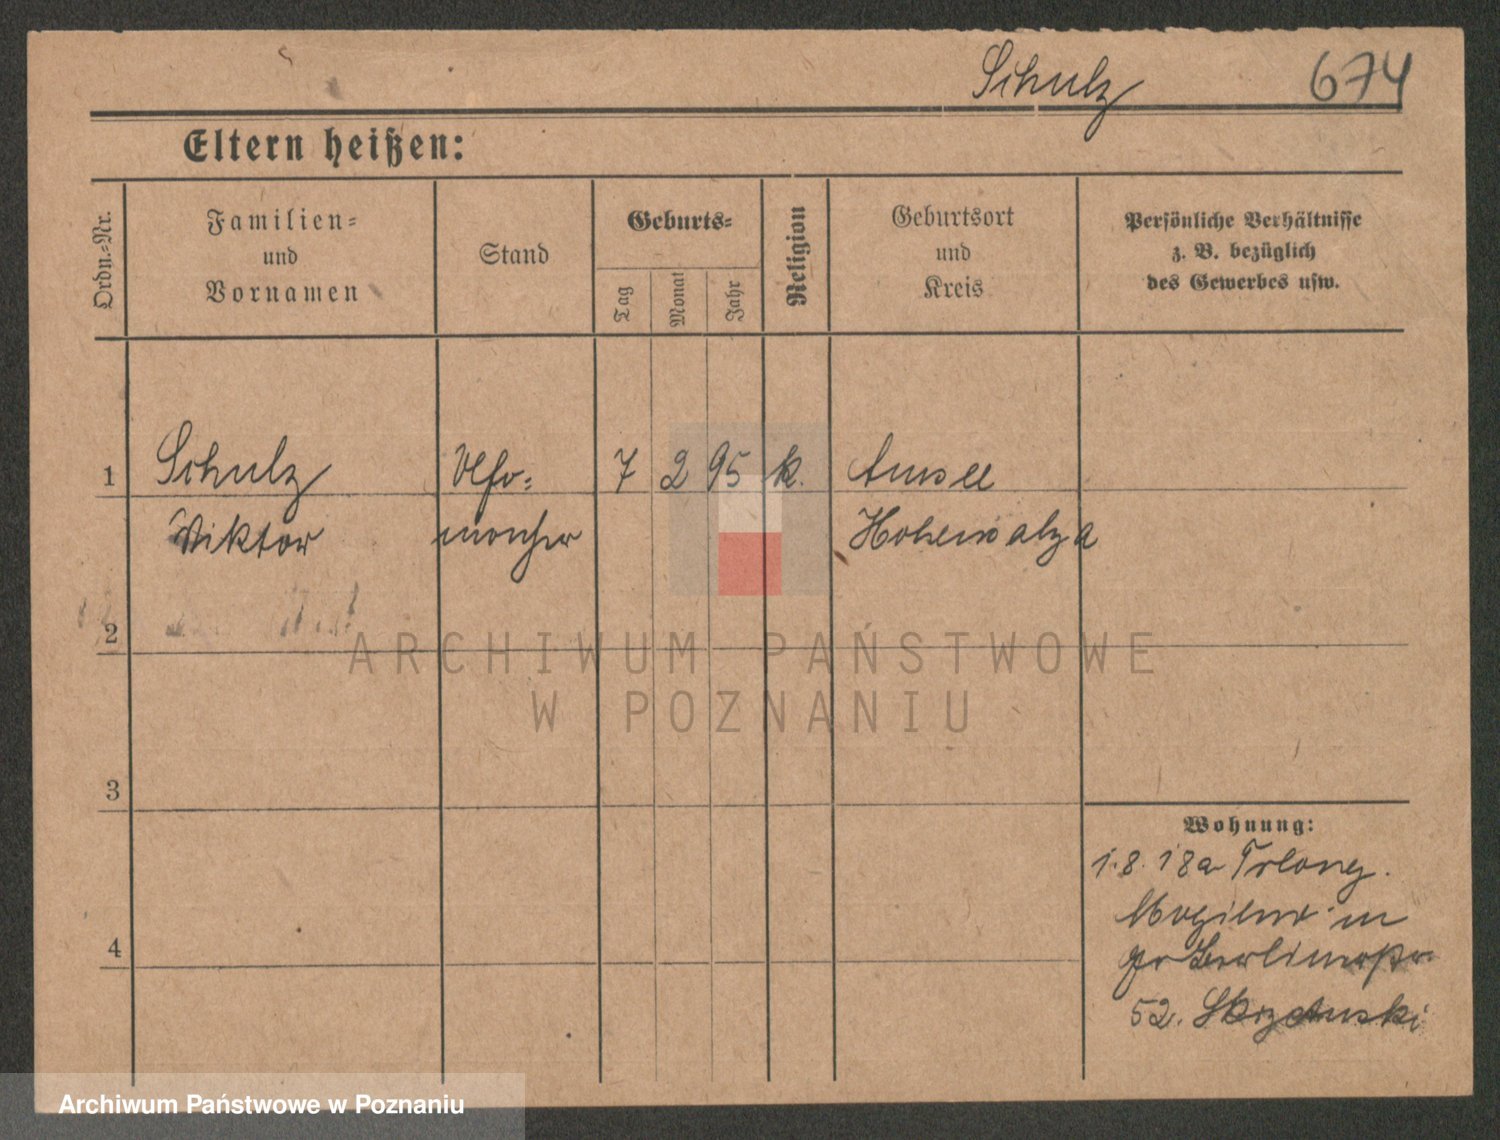 Schulz 674
Eltern heißen:
Ordn.-Nr.
Familien-
und
Vornamen
Stand
Geburts-
Tag
Monat
Jahr
Religion
Geburtsort
und
Kreis
Persönliche Verhältnisse
z. B. bezüglich
des Gewerbes usw.
1 Schulz 7 2 95 k. Amsee
Viktor Hohensalza
2
3
4
Wohnung:
1. 8. 18 a Trlong.
Mogilno in
gr Berlinerstr.
52. Skrzetuski
ARCHIWUM PAŃSTWOWE
W POZNANIU
Archiwum Państwowe w Poznaniu